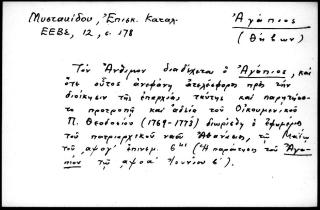 Μυστακίδου, Ἐπισκ. Καταλ.
ΕΕΒΣ, 12, σ. 178
Ἀγάπιος
(Θηβῶν)
Τὸν Ἄνθιμον διαδέχεται ὁ Ἀγάπιος, καὶ
ὅτε οὗτος ἀνεφάνη ἀτελέσφορος πρὸς τὴν
διοίκησιν τῆς ἐπαρχίας ταύτης καὶ παρητήσα-
το προτροπῇ καὶ ἀδείᾳ τοῦ Οἰκουμενικοῦ
Π. Θεοδοσίου (1769-1773) διωρίσθη ὁ ἐφημέριος
τοῦ πατριαρχικοῦ ναοῦ Ἀθανάσιος, τῷ Μαΐῳ
τοῦ ͵αψογ΄ ἐπινεμ. 6ης (Ἡ παραίτησις τοῦ Ἀγα-
πίου τῷ ͵αψοα΄ Ἰουνίου